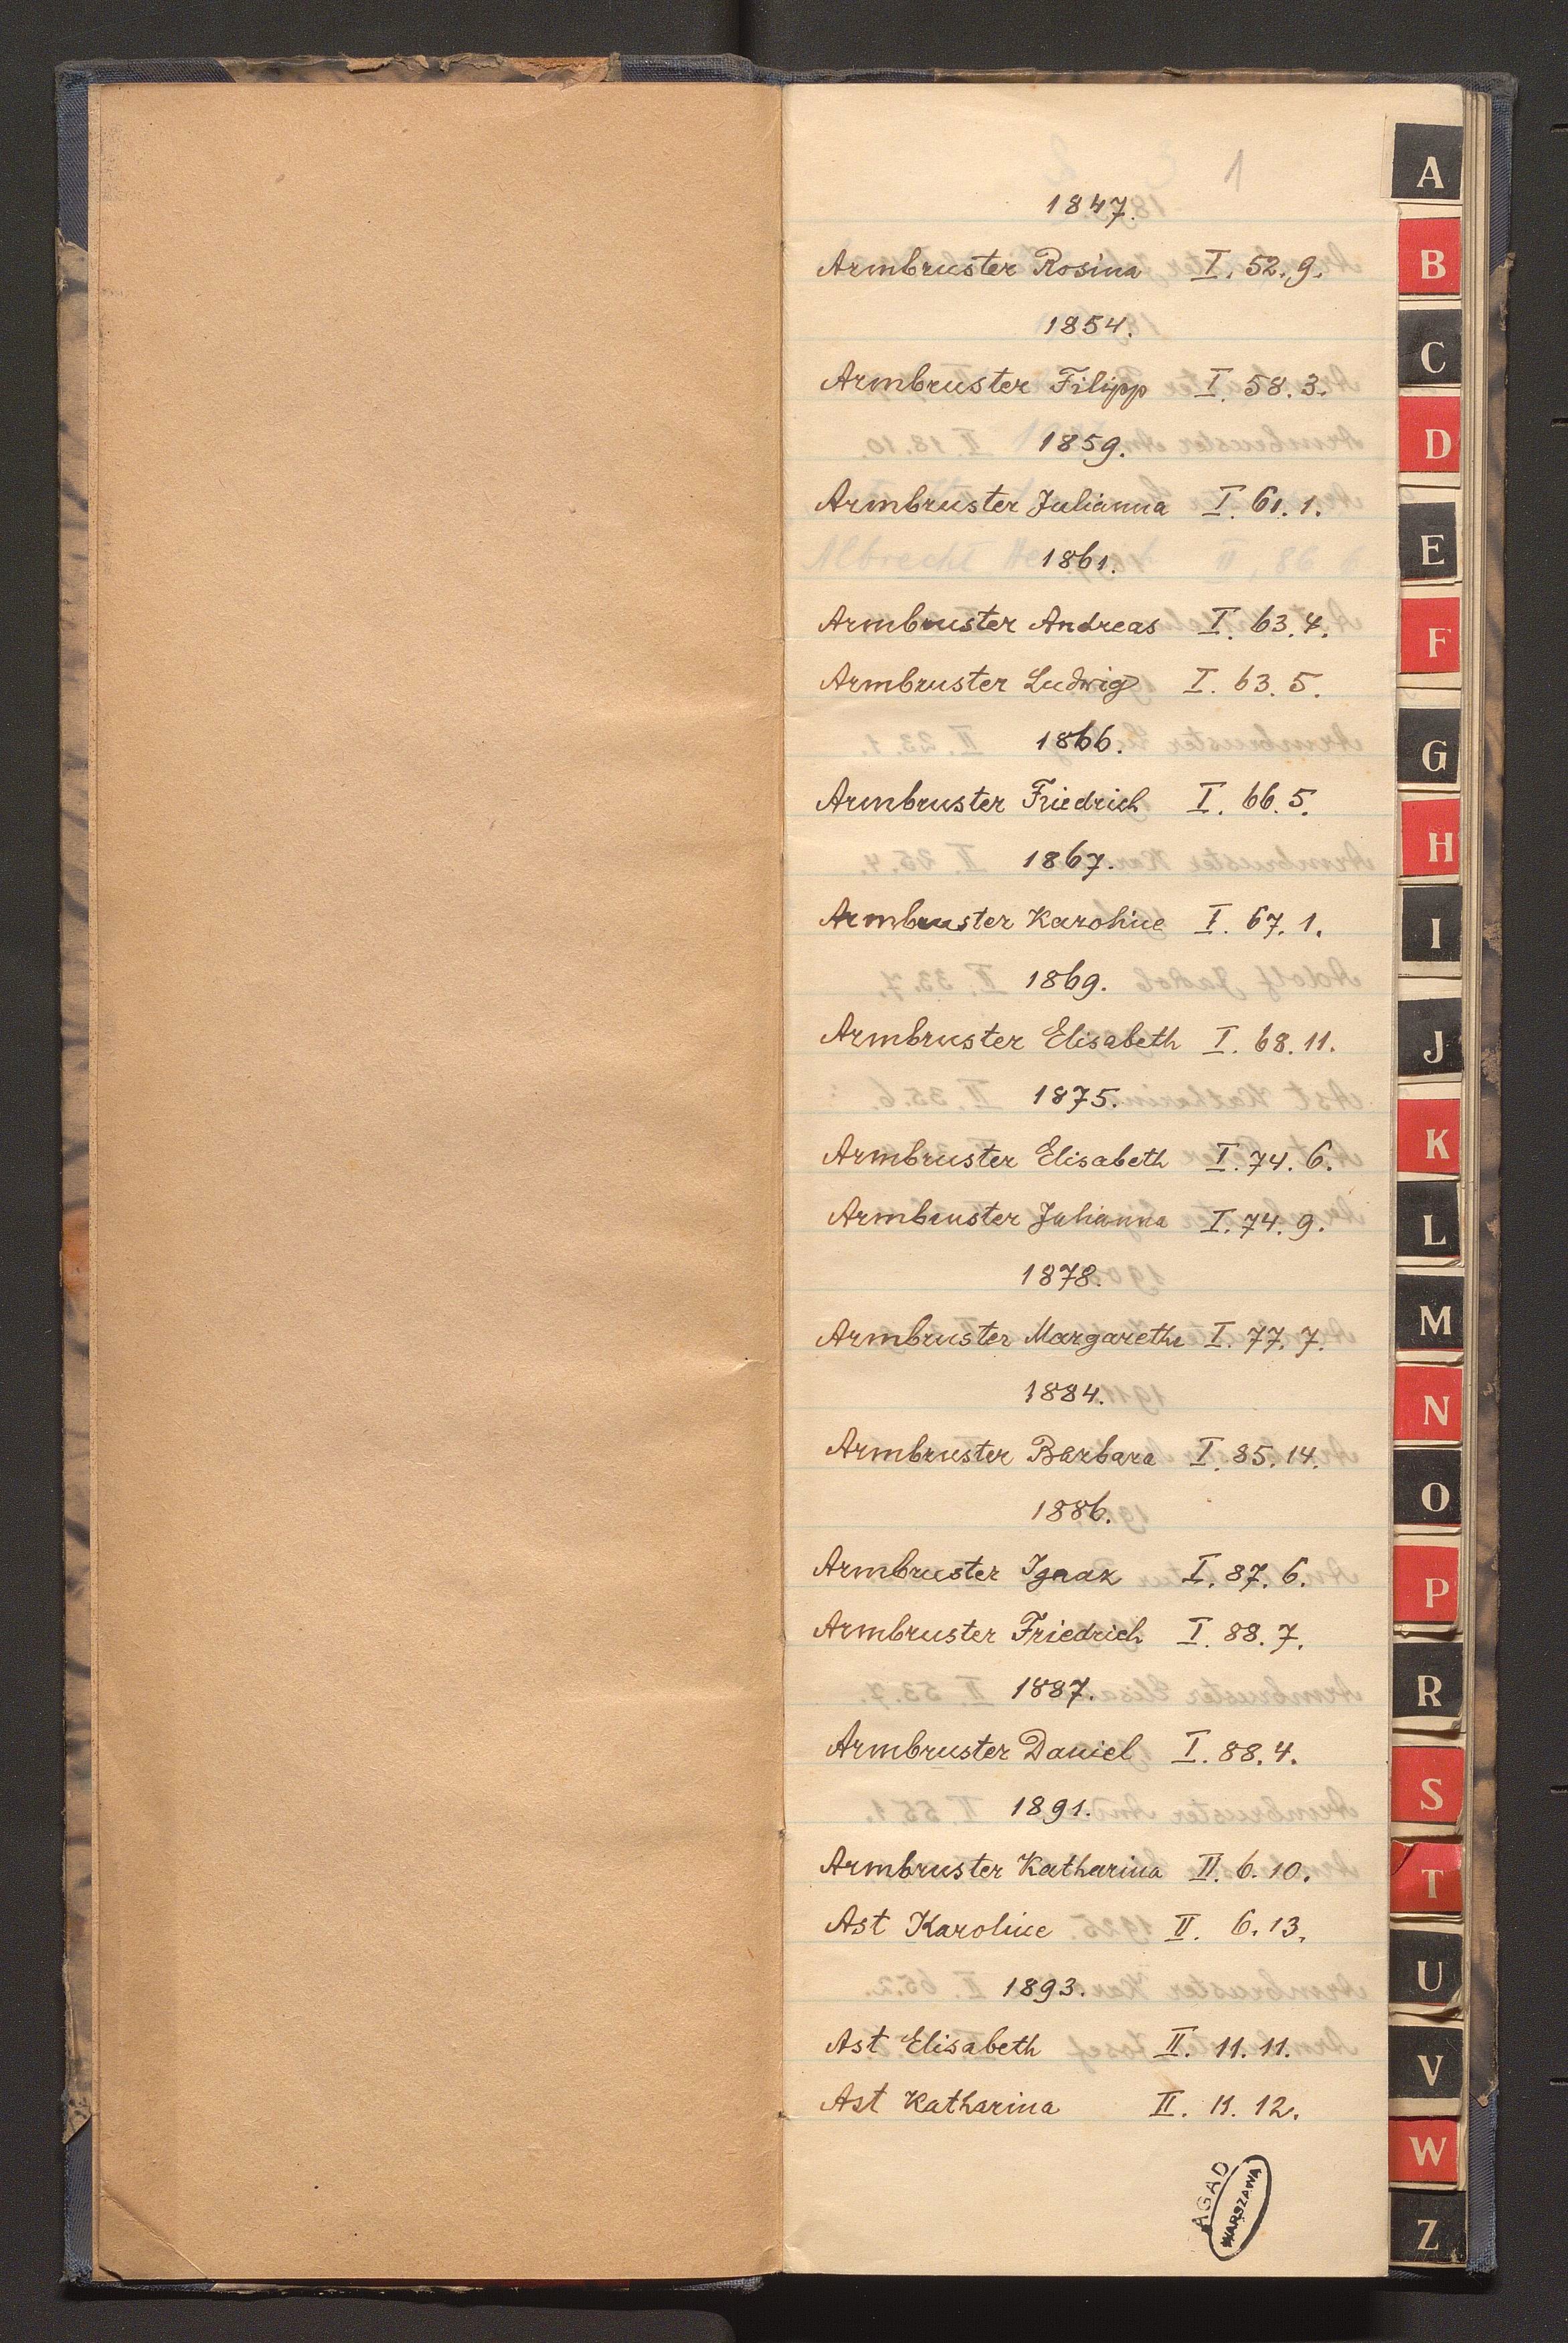 1
1847.
Armbruster Rosina I. 52. 9.
1854.
Armbruster Filipp I. 58. 3.
1859.
Armbruster Julianna I. 61. 1.
1861.
Armbruster Andreas I. 63. 4.
Armbruster Ludwig I. 63. 5.
1866.
Armbruster Friedrich I. 66. 5.
1867.
Armbruster Karoline I. 67. 1.
1869.
Armbruster Elisabeth I. 68. 11.
1875.
Armbruster Elisabeth I. 74. 6.
Armbruster Julianna I. 74. 9.
1878.
Armbruster Margarethe I. 77. 7.
1884.
Armbruster Barbara I. 85. 14.
1886.
Armbruster Ignaz I. 87. 6.
Armbruster Friedrich I. 88. 7.
1887.
Armbruster Daniel I. 88. 4.
1891.
Armbruster Katharina II. 6. 10.
Ast Karoline II. 6. 13.
1893.
Ast Elisabeth II. 11. 11.
Ast Katharina II. 11. 12.
AGAD
WARSZAWA
A
B
C
D
E
F
G
H
I
J
K
L
M
N
O
P
R
S
T
U
V
W
Z